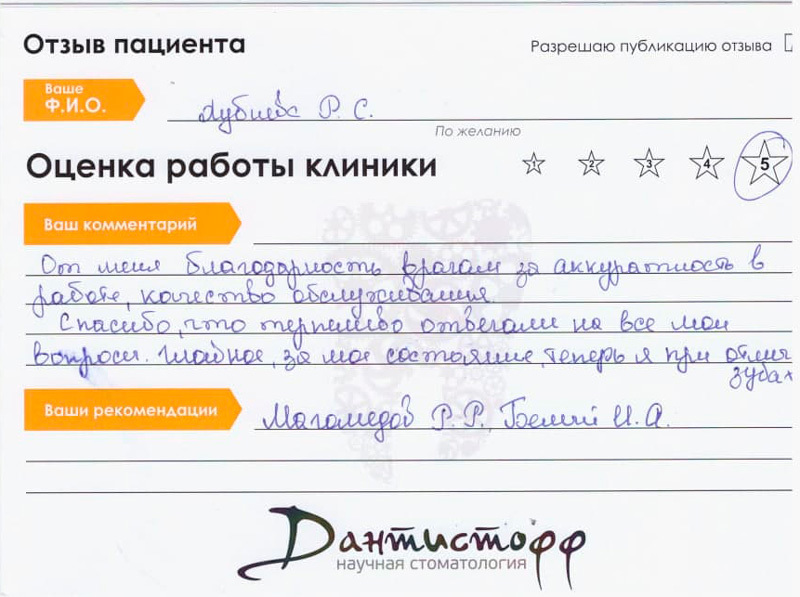 Отзыв пациента
Разрешаю публикацию отзыва
Ваше
Ф.И.О.
Р. С.
По желанию
Оценка работы клиники
1 2 3 4 5
Ваш комментарий
От меня благодарность врачам за аккуратность в
работе, качество обслуживания
Спасибо, что терпеливо отвечали на все мои
вопросы. Главное, за мое состояние, теперь я при отлич
зубах
Ваши рекомендации
Магомедов Р. Р. Белый И. А.
Дантистофф
научная стоматология